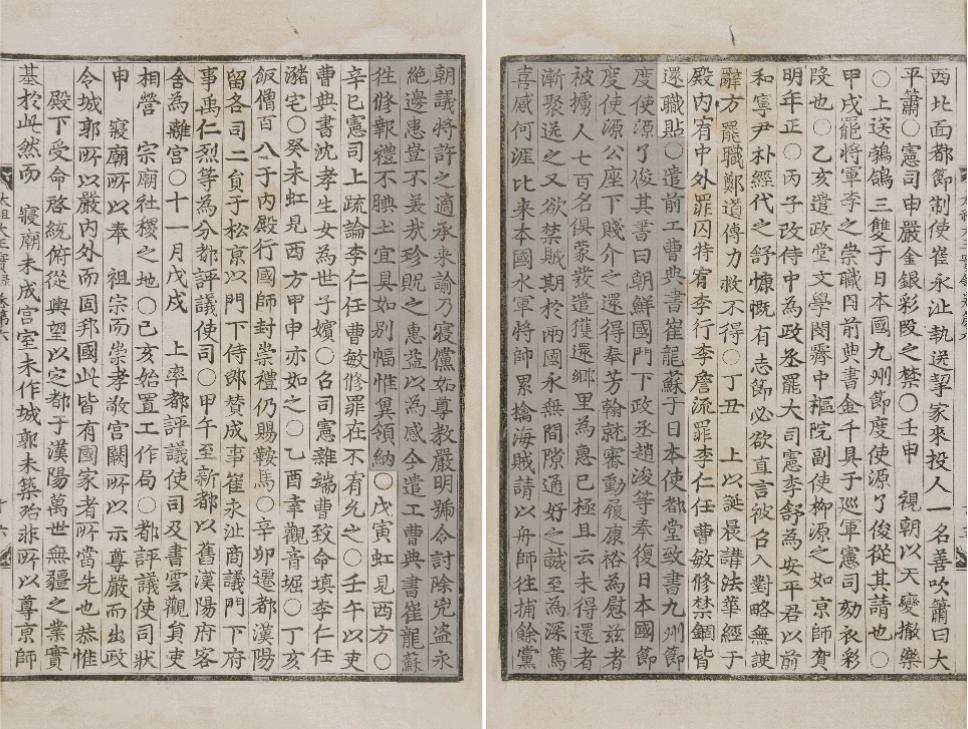 西北面都節制使崔永沚執送挈家來投人一名善吹簫曰大
平簫○憲司申嚴金銀彩段之禁○壬申　視朝以天變撤樂
○上送鵓鴿三雙于日本國九州節度使源了俊從其請也○
甲戌罷將軍李之崇職囚前典書金千具于巡軍憲司劾衣彩
段也○乙亥遣政堂文學閔霽中樞院副使柳源之如京師賀
明年正○丙子改侍中為政丞罷大司憲李舒為安平君以前
和寧尹朴經代之舒慷慨有志節必欲直言被召入對略無諛
辭方罷職鄭道傳力救不得○丁丑　上以誕晨講法華經于
殿內宥中外罪囚特宥李行李詹流罪李仁任曹敏修禁錮皆
還職貼○遣前工曹典書崔龍蘇于日本使都堂致書九州節
度使源了俊其書曰朝鮮國門下政丞趙浚等奉復日本國節
度使源公座下賤介之還得奉芳翰就審動履康裕為慰茲者
被擄人七百名俱蒙發遣獲還鄉里為惠已極且云未得還者
漸聚送之又欲禁賊期於兩國永無間隙通好之誠至為深篤
喜感何涯比來本國水軍將帥累擒海賊請以舟師往捕餘黨
朝議將許之適承來諭乃寢儻如尊教嚴明號令討除兇盜永
絶邊患豈不美哉珍貺之惠益以為感今遣工曹典書崔龍蘇
往修報禮不腆土宜具如別幅惟冀領納○戊寅虹見西方○
辛巳憲司上疏論李仁任曹敏修罪在不宥允之○壬午以吏
曹典書沈孝生女為世子嬪○召司憲雜端曹致命塡李仁任
瀦宅○癸未虹見西方甲申亦如之○乙酉幸觀音堀○丁亥
飯僧百八于內殿行國師封崇禮仍賜鞍馬○辛卯遷都漢陽
留各司二員于松京以門下侍郎贊成事崔永沚商議門下府
事禹仁烈等為分都評議使司○甲午至新都以舊漢陽府客
舍為離宮○十一月戊戌　上率都評議使司及書雲觀員吏
相營　宗廟社稷之地○己亥始置工作局○都評議使司狀
申　寢廟所以奉　祖宗而崇孝敬宮闕所以示尊嚴而出政
令城郭所以嚴內外而固邦國此皆有國家者所當先也恭惟
殿下受命啓統俯從輿望以定都于漢陽萬世無疆之業實
基於此然而　寢廟未成宮室未作城郭未築殆非所以尊京師
太祖大王實錄卷第六
十六